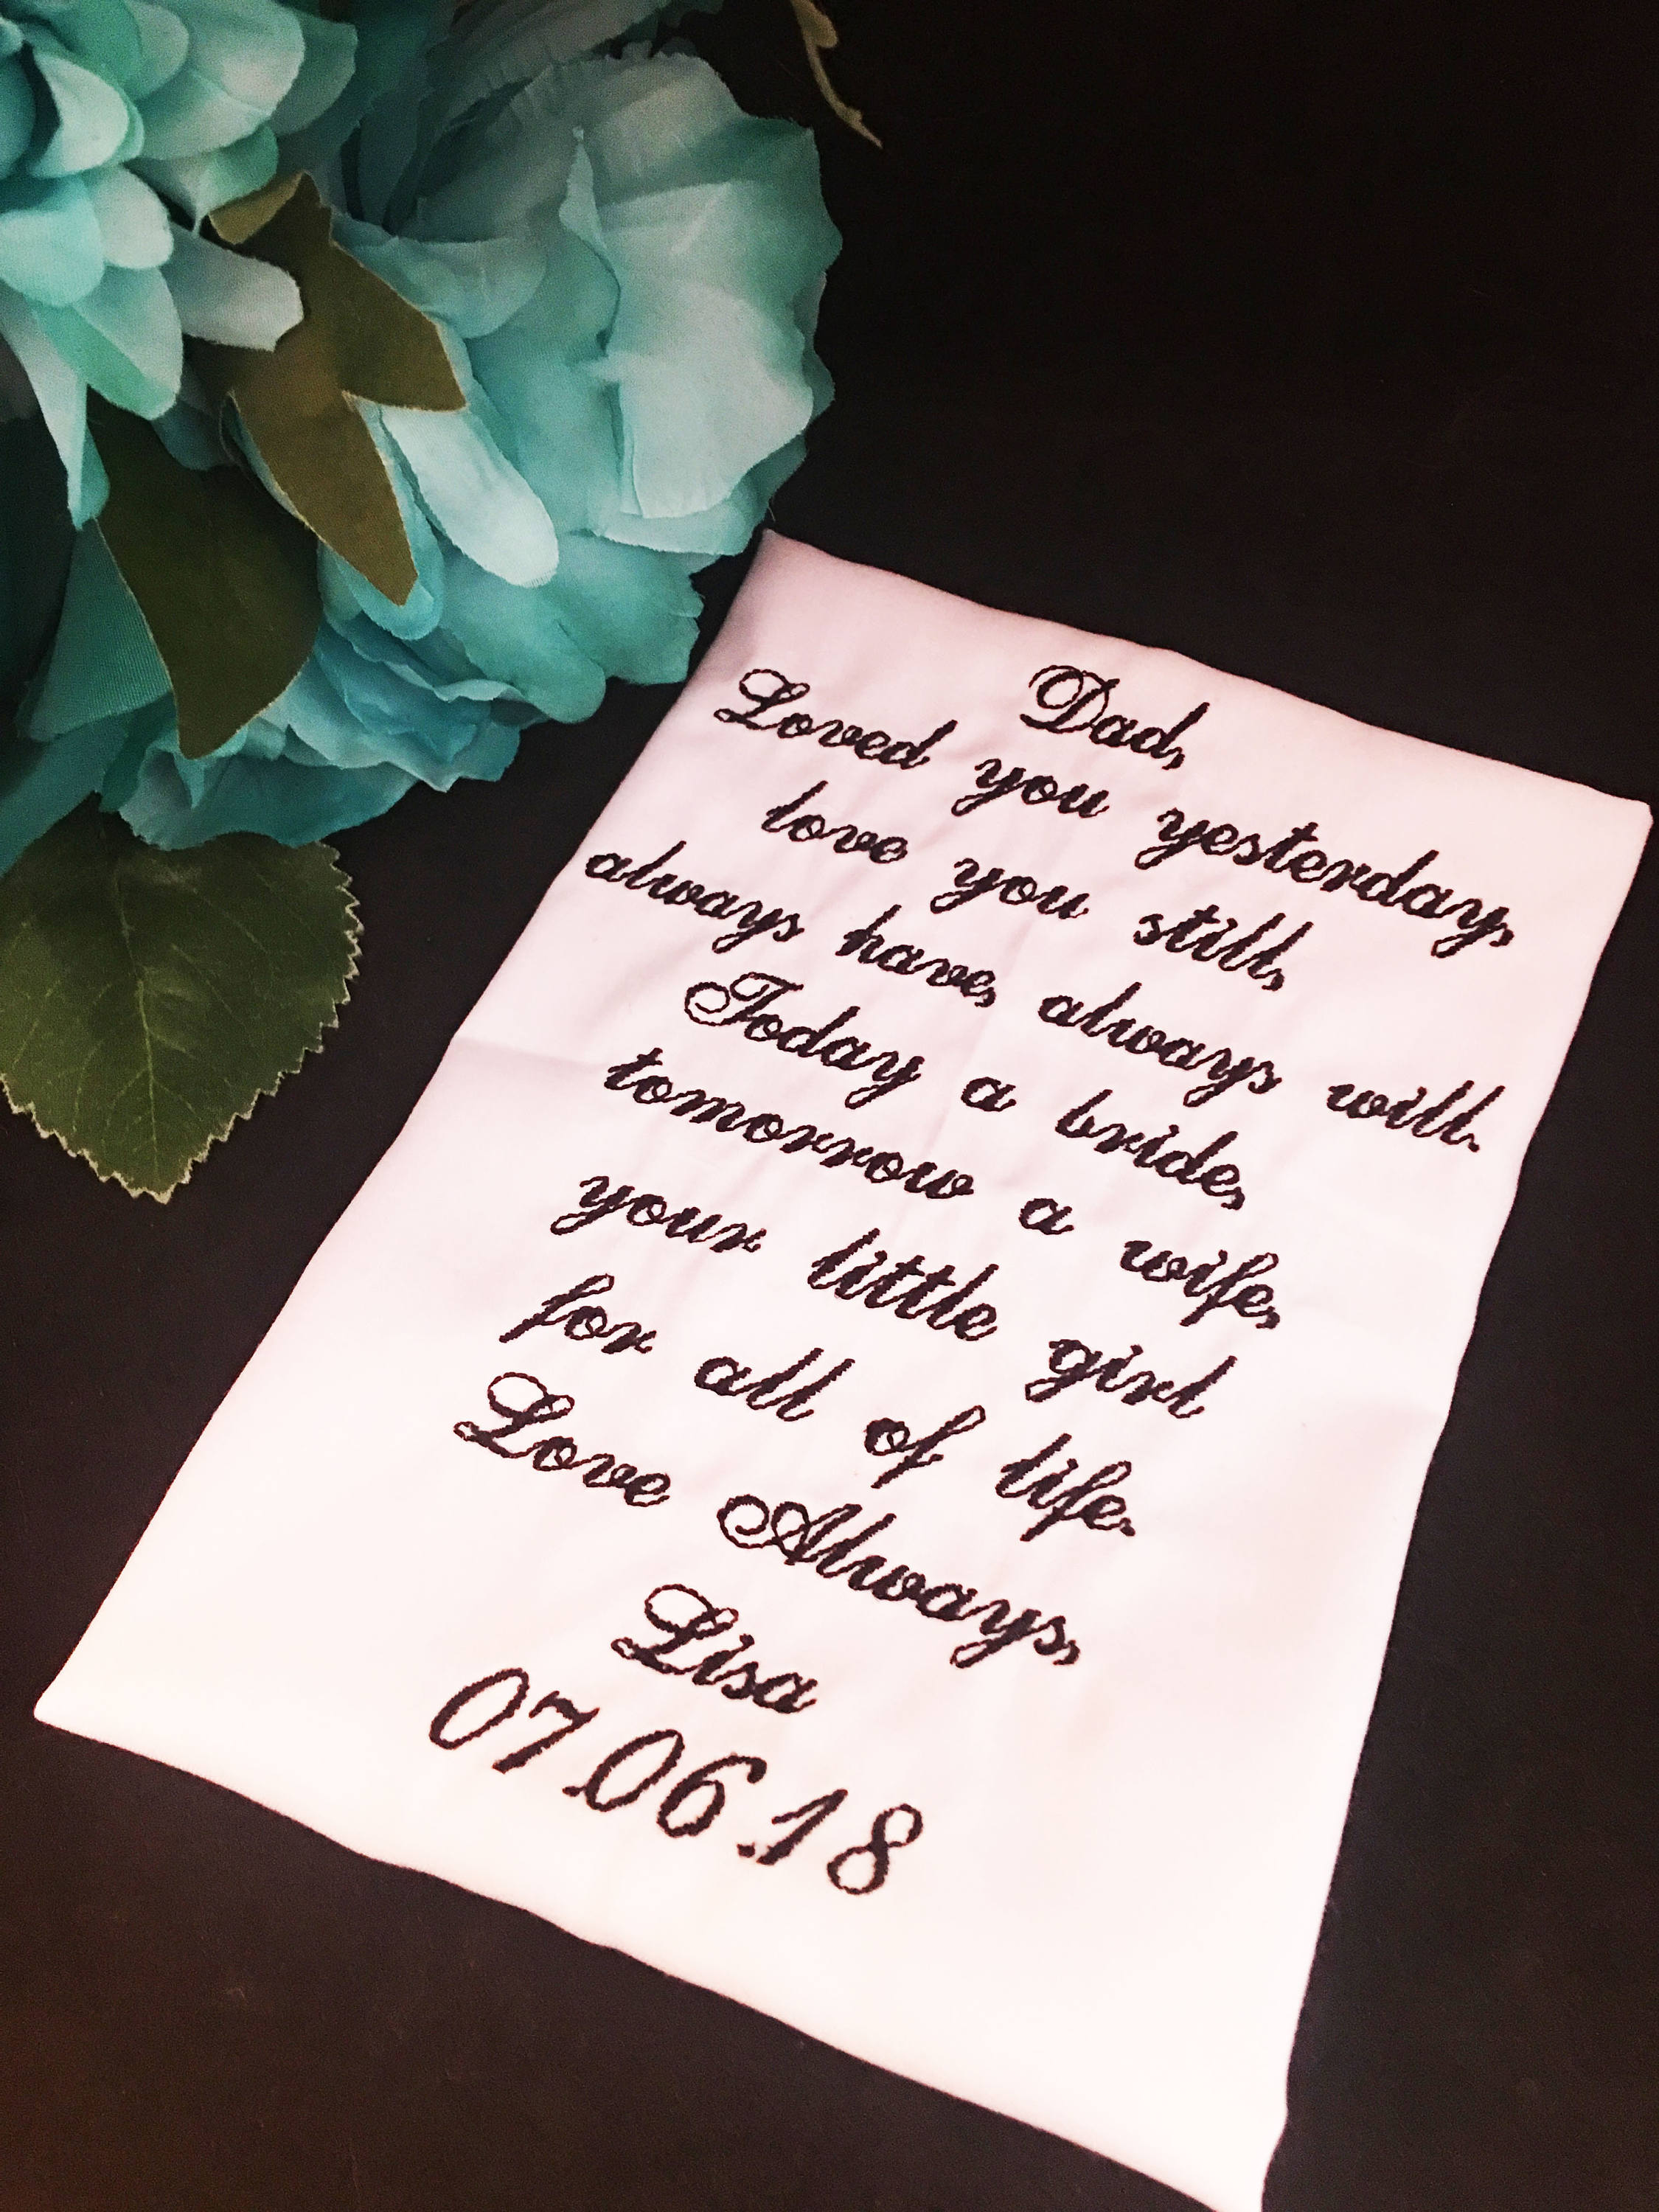 Dad,
Loved you yesterday,
love you still,
always have, always will.
Today a bride,
tomorrow a wife,
your little girl
for all of life.
Love Always,
Lisa
07.06.18